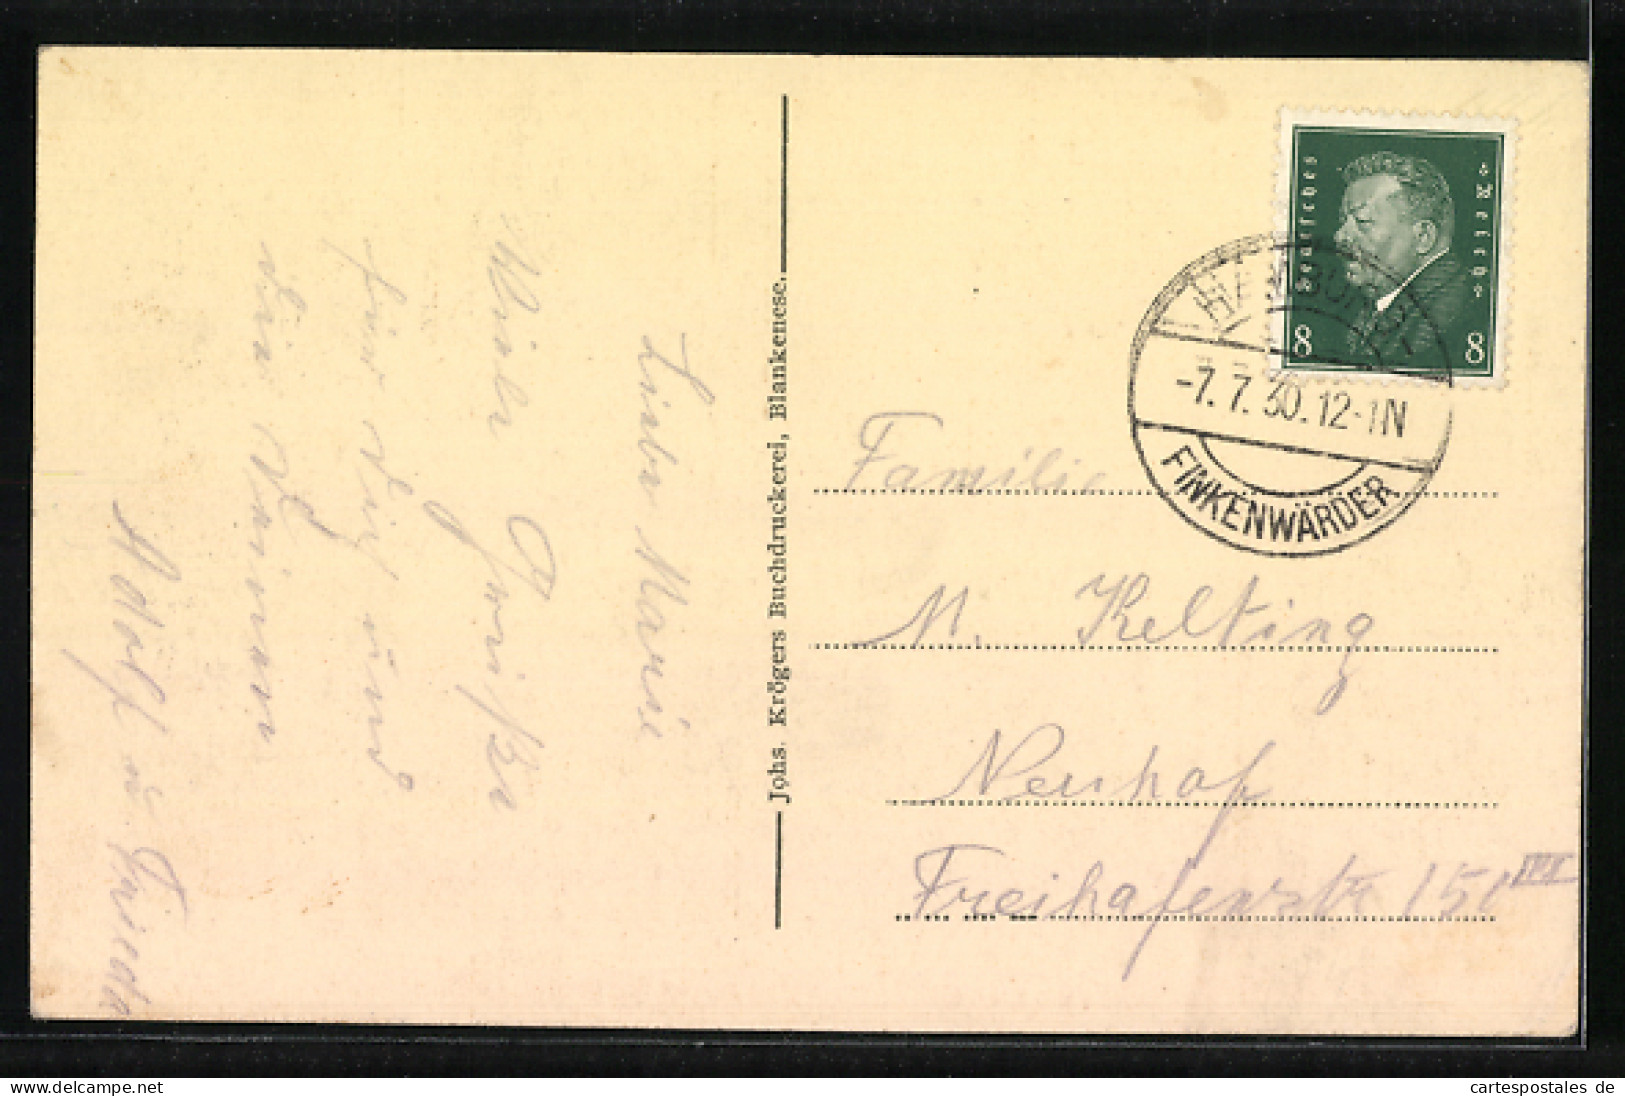 Liebe Marie
Viele Grüße
für dich und
dein Mann
Adolf u. Frieda
Johs. Krögers Buchdruckerei, Blankenese.
Deutsches Reich
8 8
HAMBURG
-7.7.30.12-1N
FINKENWÄRDER
Familie
M. Kelting
Neuhof
Freihafenstr. 150 III
delcampe.net
cartespostales de